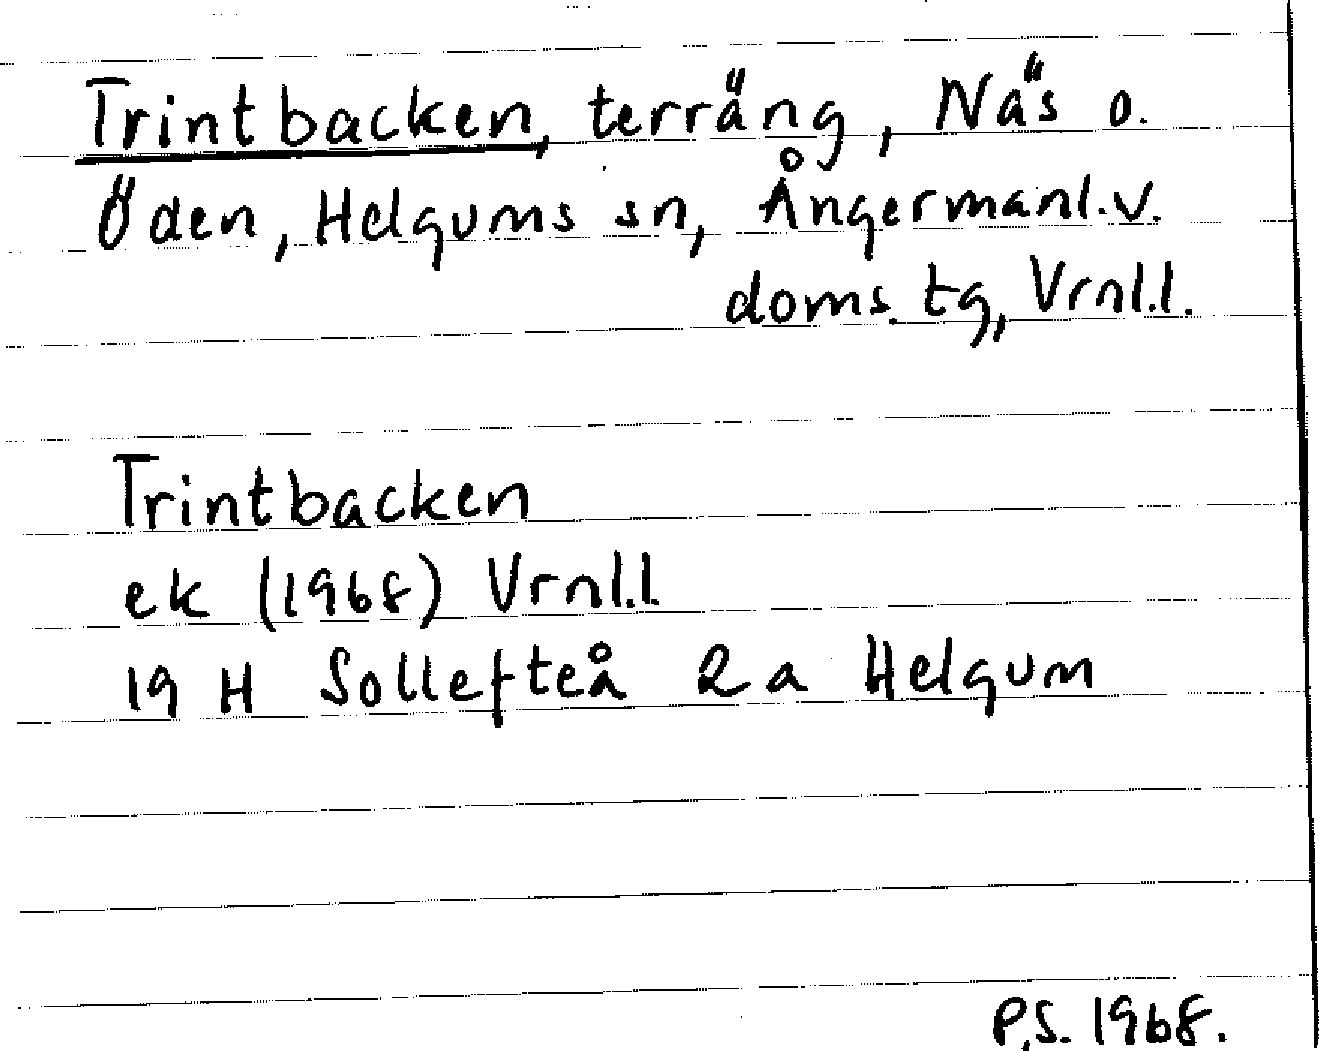 Trintbacken, terräng, Näs o.
Öden, Helgums sn, Ångermanl.v.
doms. tg, Vrnl.l.
Trintbacken
ek (1968) Vrnl.l.
19 H Sollefteå 2a Helgum
P.S. 1968.